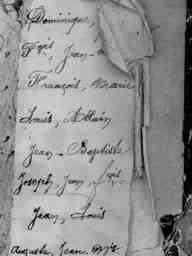 Dominique,
Jean-
François, Marie
Louis, Albain
Jean-Baptiste
Joseph, Jean
Jean, Louis
Auguste, Jean